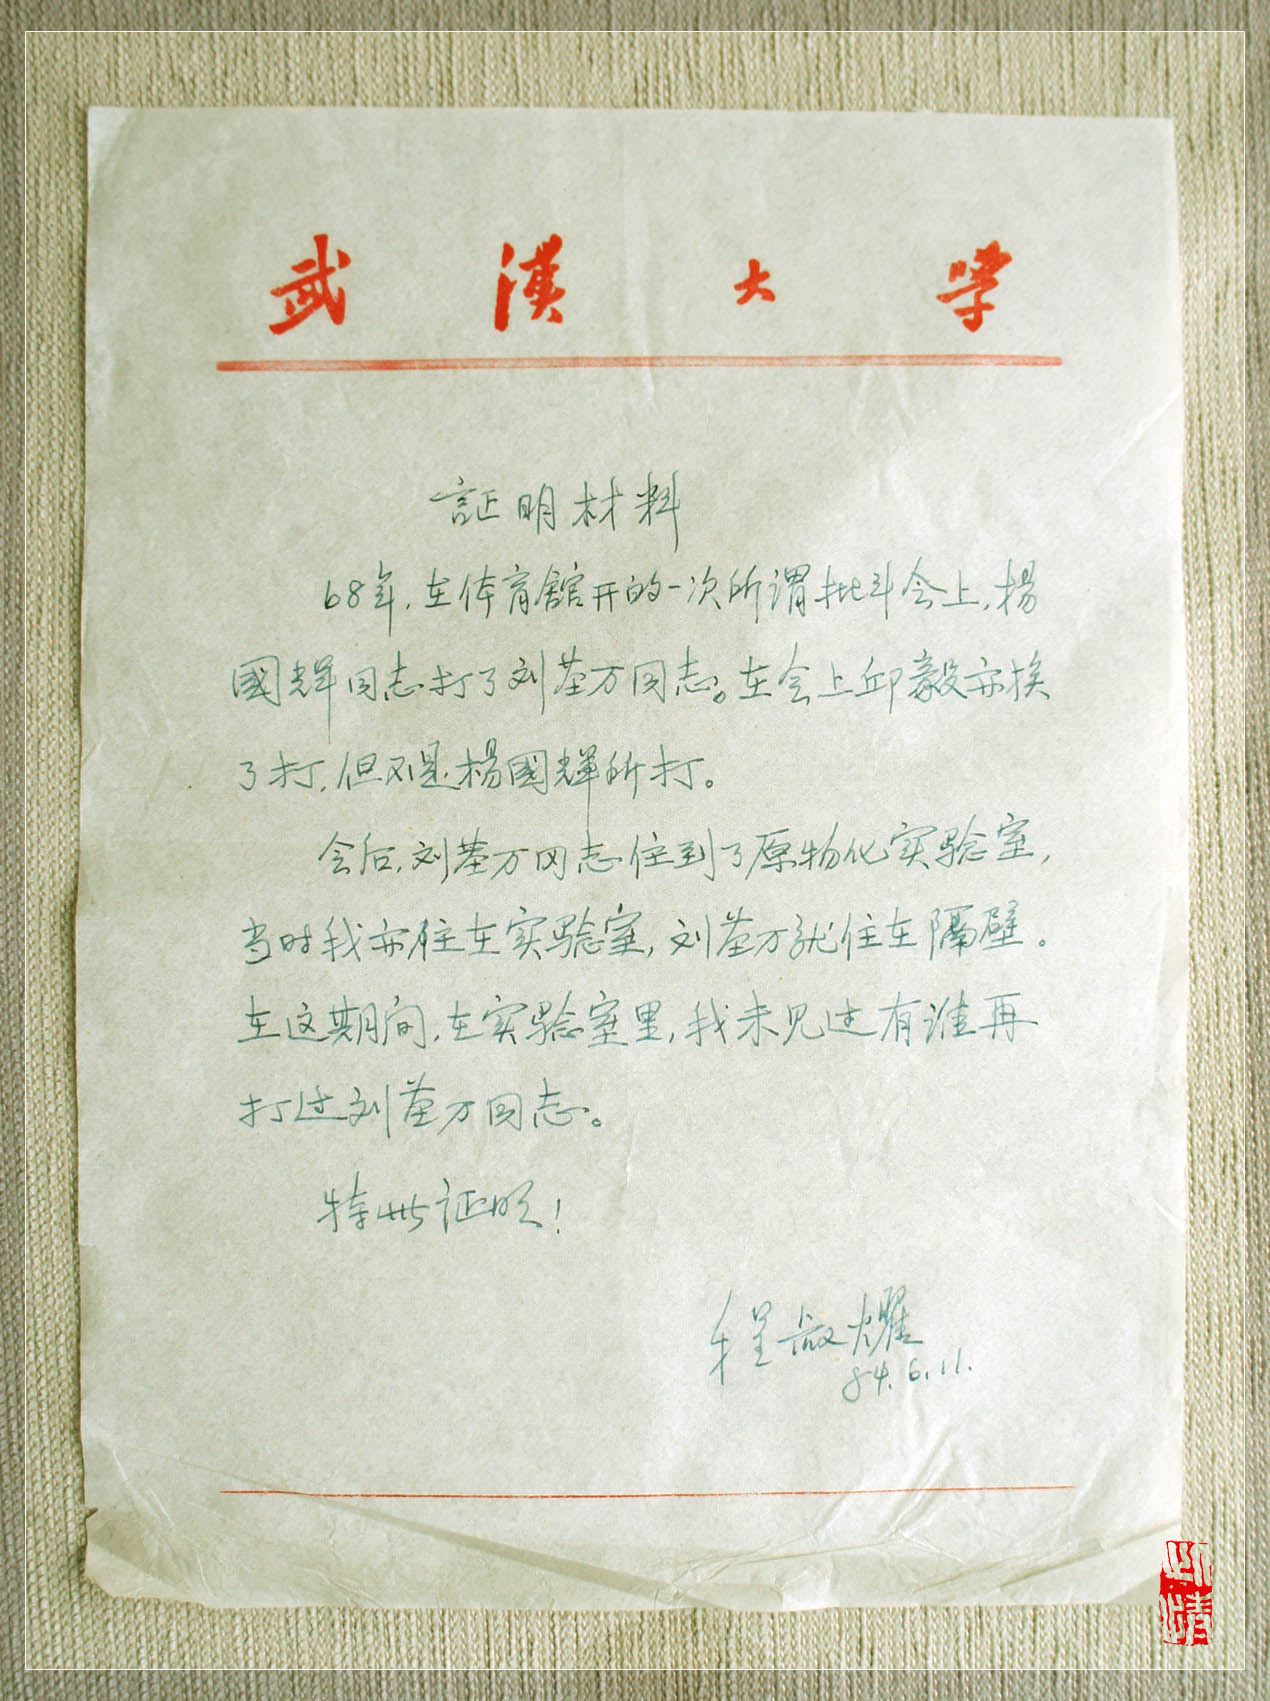 武漢大学
証明材料
68年,在体育館开的一次所谓批斗会上,楊
國輝同志打了刘基万同志。在会上邱毅亦挨
了打,但不是楊國輝所打。
会后,刘基万同志住到了原物化实验室,
当时我亦住在实验室,刘基万就住在隔壁。
在这期间,在实验室里,我未见过有谁再
打过刘基万同志。
特此证明!
程叔燿
84.6.11.